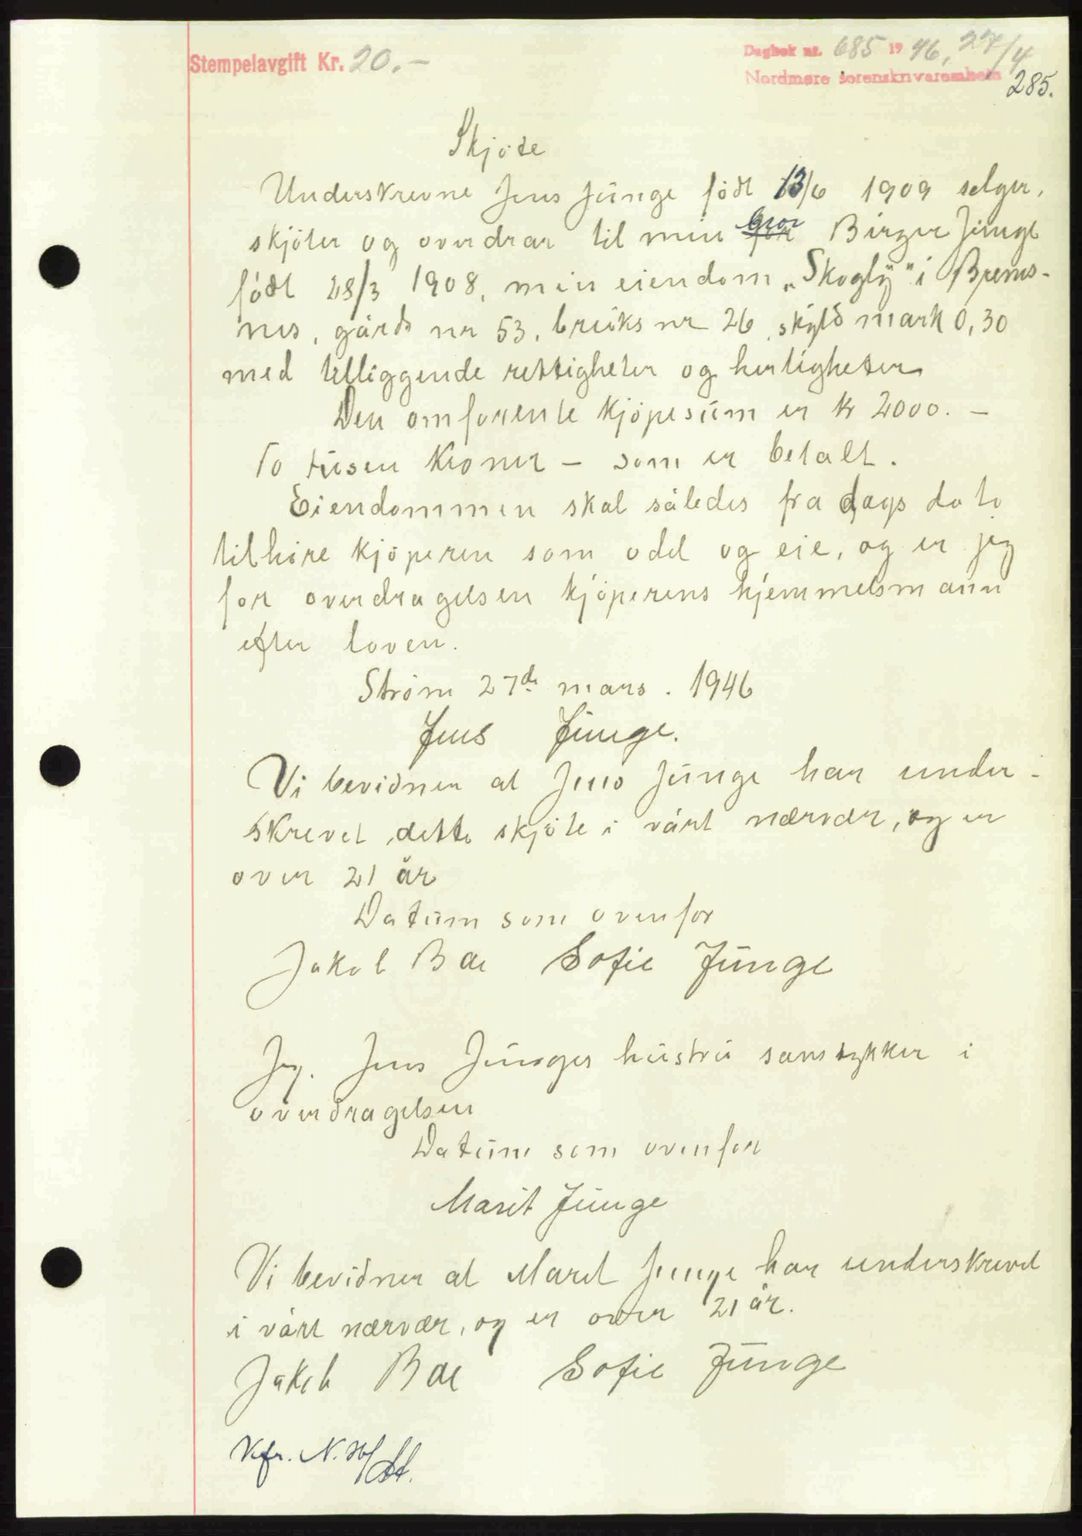 Stempelavgift Kr. 20.-
Dagbok nr. 685 1946, 27/4
Nordmøre sorenskriverembede
285.
Skjøte
Underskrevne Jens Junge født 13/6 1909 selger,
skjøter og overdrar til min bror Birger Junge
født 28/3 1908, min eiendom „Skogly" i Brems-
nes, gårds nr 53, bruks nr 26, skyld mark 0,30
med tilliggende rettigheter og herligheter
Den omforente kjøpesum er kr 2000.-
To tusen kroner - som er betalt.
Eiendommen skal således fra dags dato
tilhøre kjøperen som odel og eie, og er jeg
for overdragelsen kjøperens hjemmelsmann
efter loven.
Strøm 27de mars. 1946
Jens Junge.
Vi bevidner at Jens Junge har under-
skrevet dette skjøte i vårt nærvær, og er
over 21 år
Datum som ovenfor
Jakob Bae Sofie Junge
Jeg. Jens Junges hustru samtykker i
overdragelsen
Datum som ovenfor
Marit Junge
Vi bevidner at Marit Junge har underskrevet
i vårt nærvær, og er over 21 år.
Jakob Bae Sofie Junge